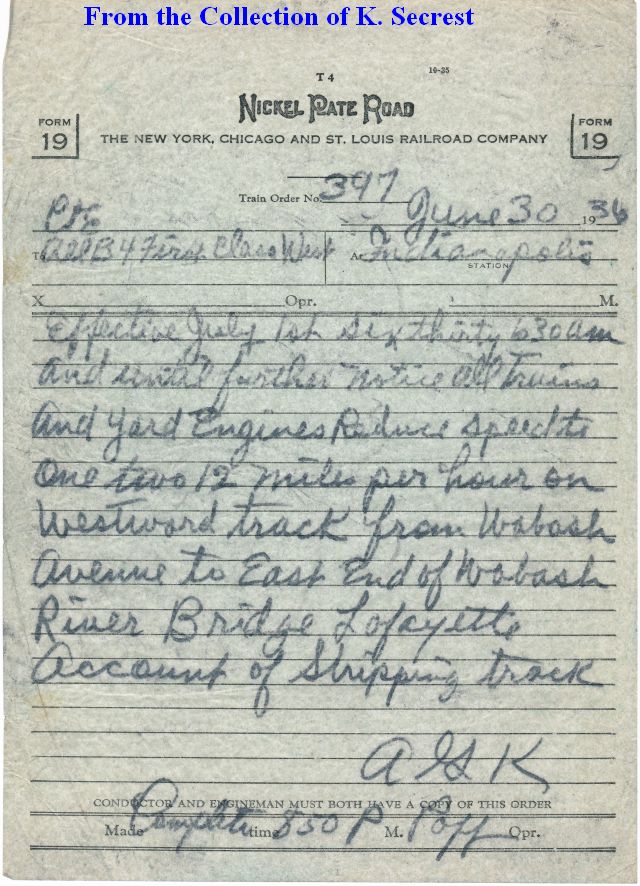 From the Collection of K. Secrest
T 4 10-35
NICKEL PLATE ROAD
FORM 19 THE NEW YORK, CHICAGO AND ST. LOUIS RAILROAD COMPANY FORM 19
Train Order No. 397
June 30 1936
To All B 4 First Class West At Indianapolis
STATION
X Opr. M.
Effective July 1st six thirty 630 am
and until further notice all trains
and yard Engines Reduce speed to
One two 12 miles per hour on
Westword track from Wabash
Avenue to East End of Wabash
River Bridge Lafayette
Account of Stripping track
A G K
CONDUCTOR AND ENGINEMAN MUST BOTH HAVE A COPY OF THIS ORDER
Made Complete time 850 P M. Poff Opr.